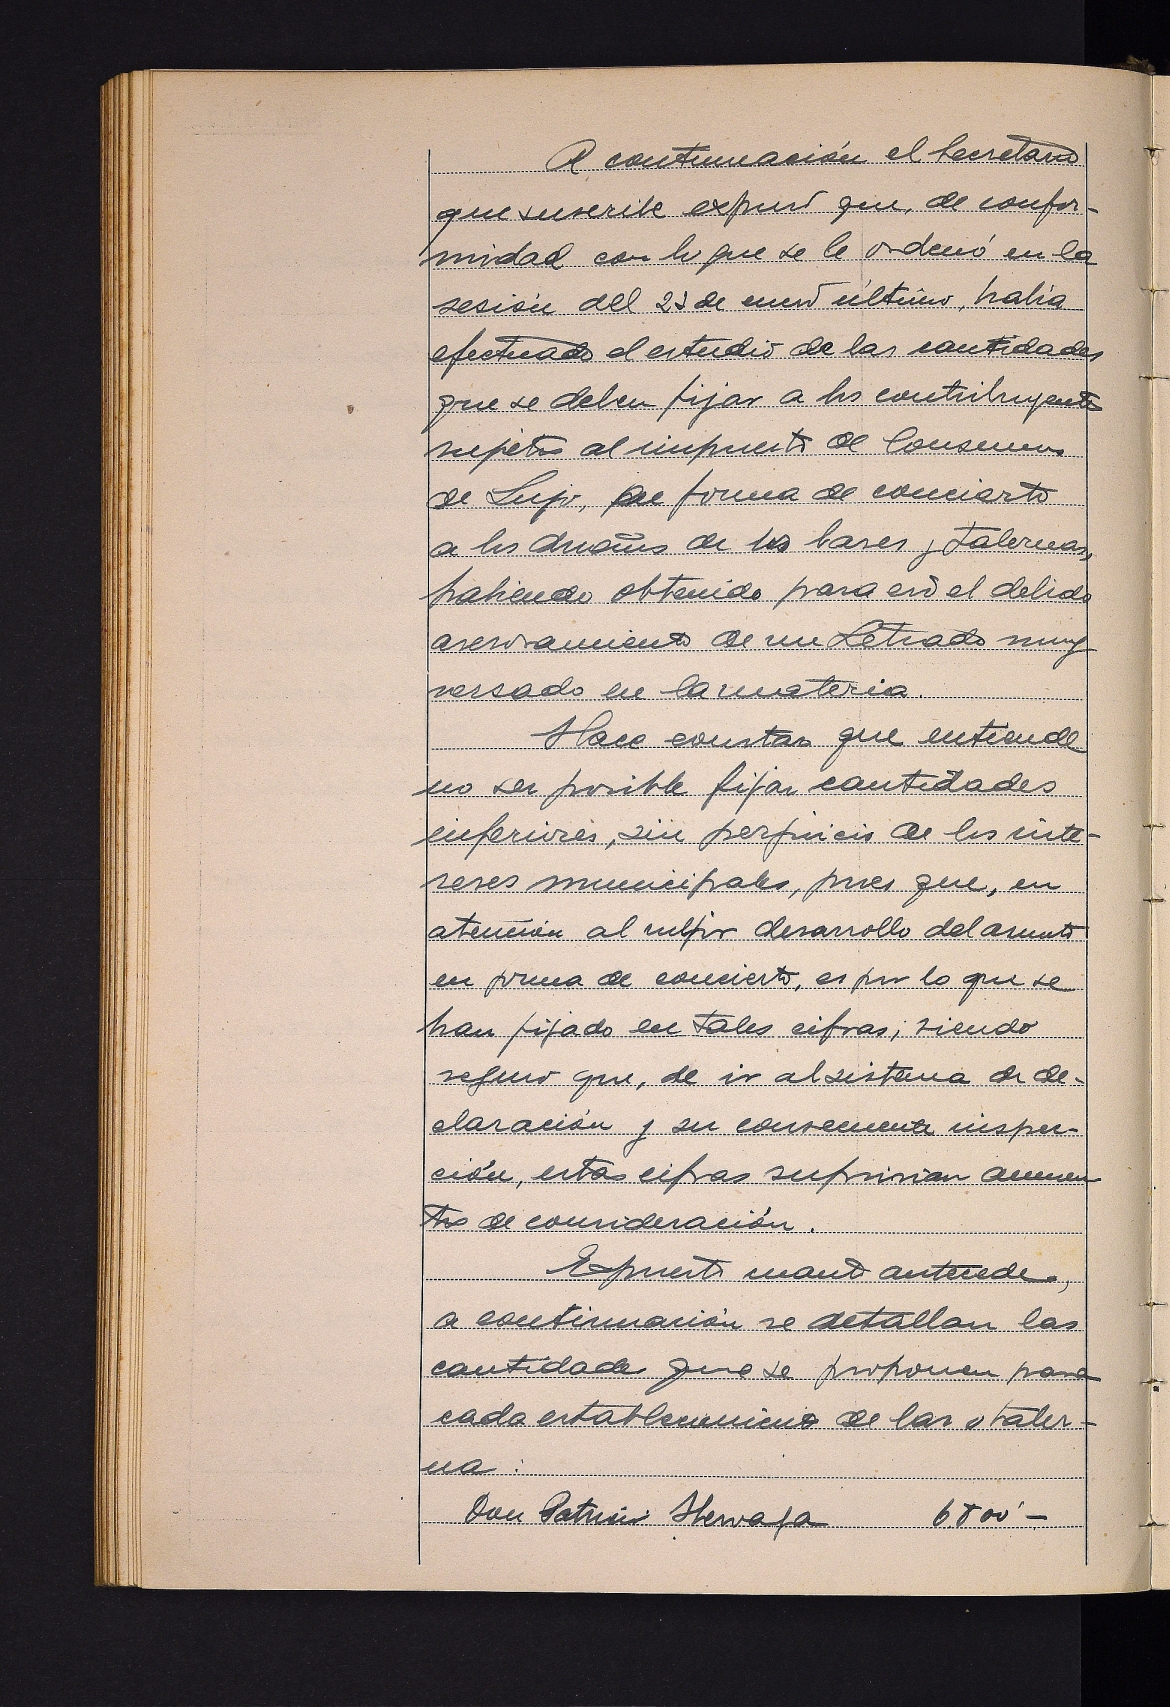 A continuación el Secretario
que suscribe expuso que, de confor-
midad con lo que se le ordenó en la
sesión del 23 de enero último, había
efectuado el estudio de las cantidades
que se deben fijar a los contribuyentes
sujetos al impuesto de Consumos
de Lujo, en forma de concierto
a los dueños de los bares y tabernas,
habiendo obtenido para eso el debido
asesoramiento de un Letrado muy
versado en la materia.
Hace constar que entiende
no ser posible fijar cantidades
inferiores, sin perjuicio de los inte-
reses municipales, pues que, en
atención al mejor desarrollo del asunto
en forma de concierto, es por lo que se
han fijado en tales cifras; siendo
seguro que, de ir al sistema de de-
claración y su consecuente inspec-
ción, estas cifras sufririan aumen
tos de consideración.
Expuesto cuanto antecede,
a continuación se detallan las
cantidades que se proponen para
cada establecimiento de bar o taber-
na:
Don Patricio 6.800'-